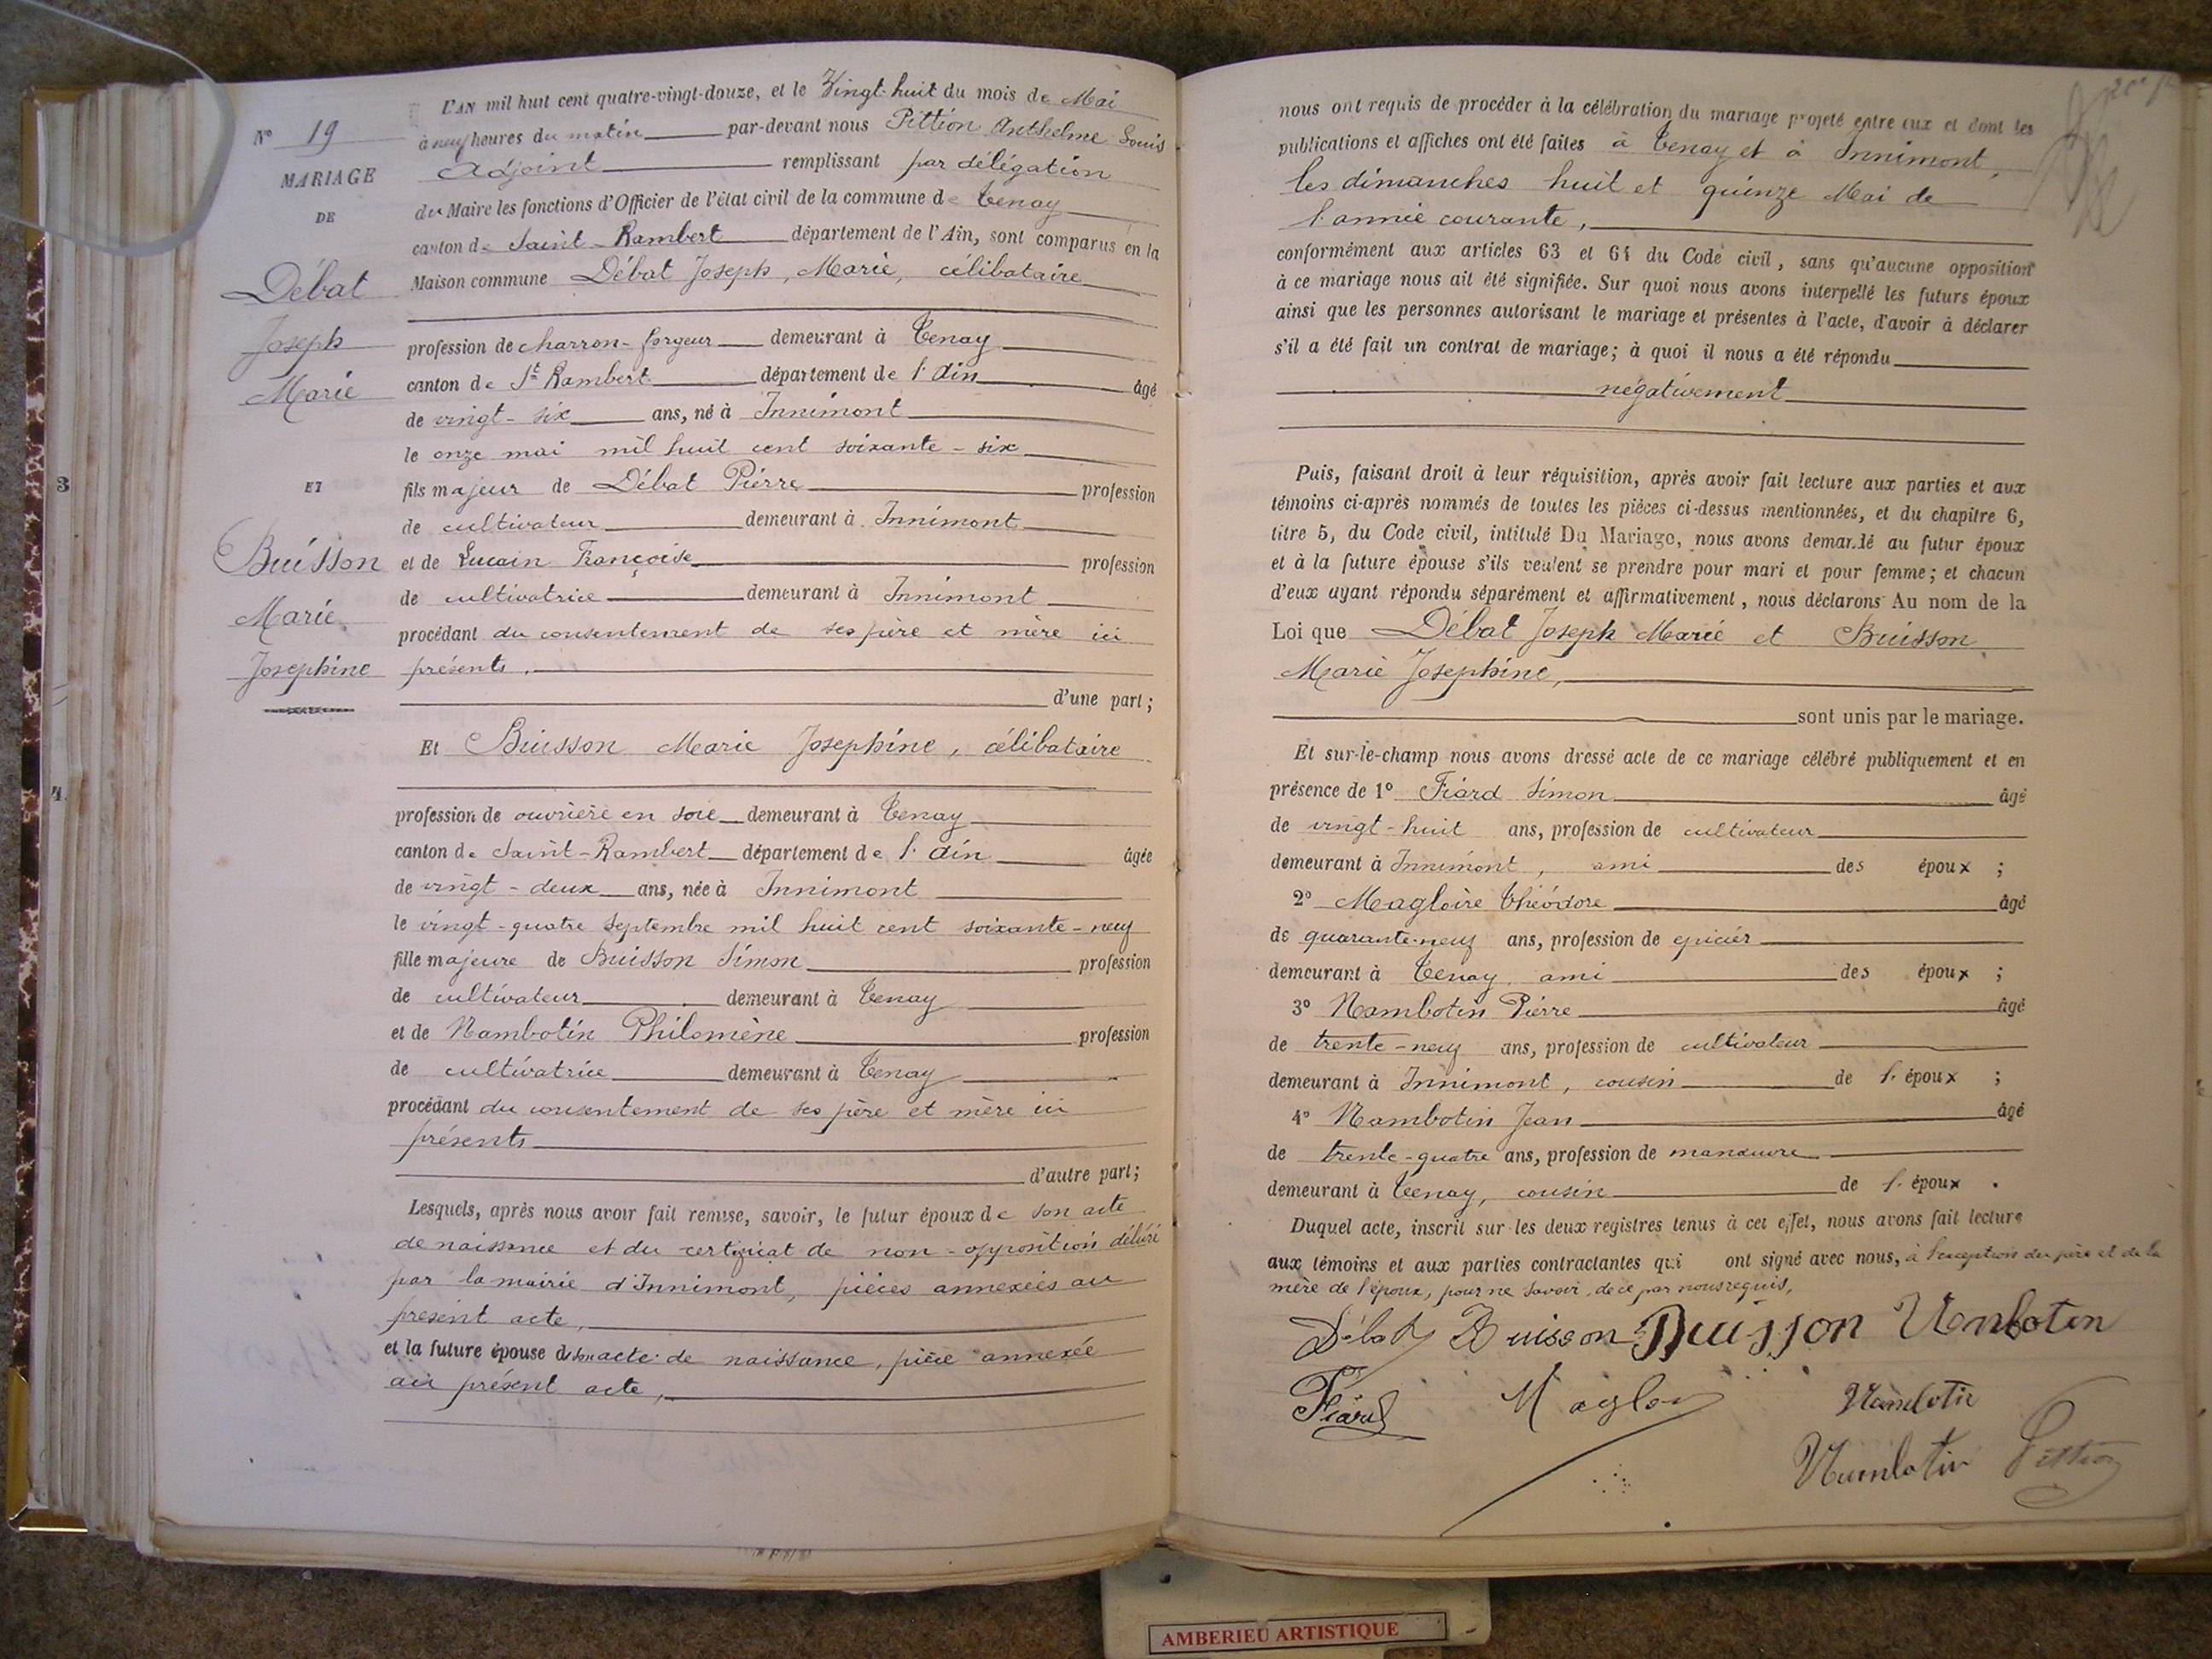 L'AN mil huit cent quatre-vingt-douze, et le Vingt-huit du mois de Mai
N° 19
à neuf heures du matin par-devant nous Pittion Anthelme Louis
MARIAGE
Adjoint remplissant par délégation
DE
du Maire les fonctions d'Officier de l'état civil de la commune de Tenay
canton de Saint-Rambert département de l'Ain, sont comparus en la
Débat
Maison commune Débat Joseph, Marie, célibataire
Joseph
profession de charron-forgeur demeurant à Tenay
Marie
canton de St Rambert département de l'Ain âgé
de vingt-six ans, né à Innimont
le onze mai mil huit cent soixante-six
ET
fils majeur de Débat Pierre profession
de cultivateur demeurant à Innimont
Buisson
et de Lucain Françoise profession
de cultivatrice demeurant à Innimont
Marie
procédant du consentement de ses père et mère ici
Josephine
présents,
d'une part;
Et Buisson Marie Josephine, célibataire
profession de ouvrière en soie demeurant à Tenay
canton de Saint-Rambert département de l'Ain âgée
de vingt-deux ans, née à Innimont
le vingt-quatre Septembre mil huit cent soixante-neuf
fille majeure de Buisson Simon profession
de cultivateur demeurant à Tenay
et de Nambotin Philomène profession
de cultivatrice demeurant à Tenay
procédant du consentement de ses père et mère ici
présents
d'autre part;
Lesquels, après nous avoir fait remise, savoir, le futur époux de son acte
de naissance et du certificat de non-opposition délivré
par la mairie d'Innimont, pièces annexées au
présent acte,
et la future épouse de son acte de naissance, pièce annexée
au présent acte,
3
4
nous ont requis de procéder à la célébration du mariage projeté entre eux et dont les
publications et affiches ont été faites à Tenay et à Innimont,
les dimanches huit et quinze Mai de
l'année courante,
conformément aux articles 63 et 64 du Code civil, sans qu'aucune opposition
à ce mariage nous ait été signifiée. Sur quoi nous avons interpellé les futurs époux
ainsi que les personnes autorisant le mariage et présentes à l'acte, d'avoir à déclarer
s'il a été fait un contrat de mariage; à quoi il nous a été répondu
négativement
Puis, faisant droit à leur réquisition, après avoir fait lecture aux parties et aux
témoins ci-après nommés de toutes les pièces ci-dessus mentionnées, et du chapitre 6,
titre 5, du Code civil, intitulé Du Mariage, nous avons demandé au futur époux
et à la future épouse s'ils veulent se prendre pour mari et pour femme; et chacun
d'eux ayant répondu séparément et affirmativement, nous déclarons Au nom de la
Loi que Débat Joseph Marie et Buisson
Marie Josephine,
sont unis par le mariage.
Et sur-le-champ nous avons dressé acte de ce mariage célébré publiquement et en
présence de 1° Fiard Simon âgé
de vingt-huit ans, profession de cultivateur
demeurant à Innimont, ami des époux;
2° Magloire Théodore âgé
de quarante-neuf ans, profession de epicier
demeurant à Tenay ami des époux;
3° Nambotin Pierre âgé
de trente-neuf ans, profession de cultivateur
demeurant à Innimont, cousin de l'époux;
4° Nambotin Jean âgé
de trente-quatre ans, profession de manœuvre
demeurant à Tenay, cousin de l'époux.
Duquel acte, inscrit sur les deux registres tenus à cet effet, nous avons fait lecture
aux témoins et aux parties contractantes qui ont signé avec nous, à l'exception du père et de la
mère de l'époux, pour ne savoir, de ce par nous requis,
Débat Buisson Buisson Nambotin
Fiard Nambotin
Nambotin Pittion
AMBERIEU ARTISTIQUE